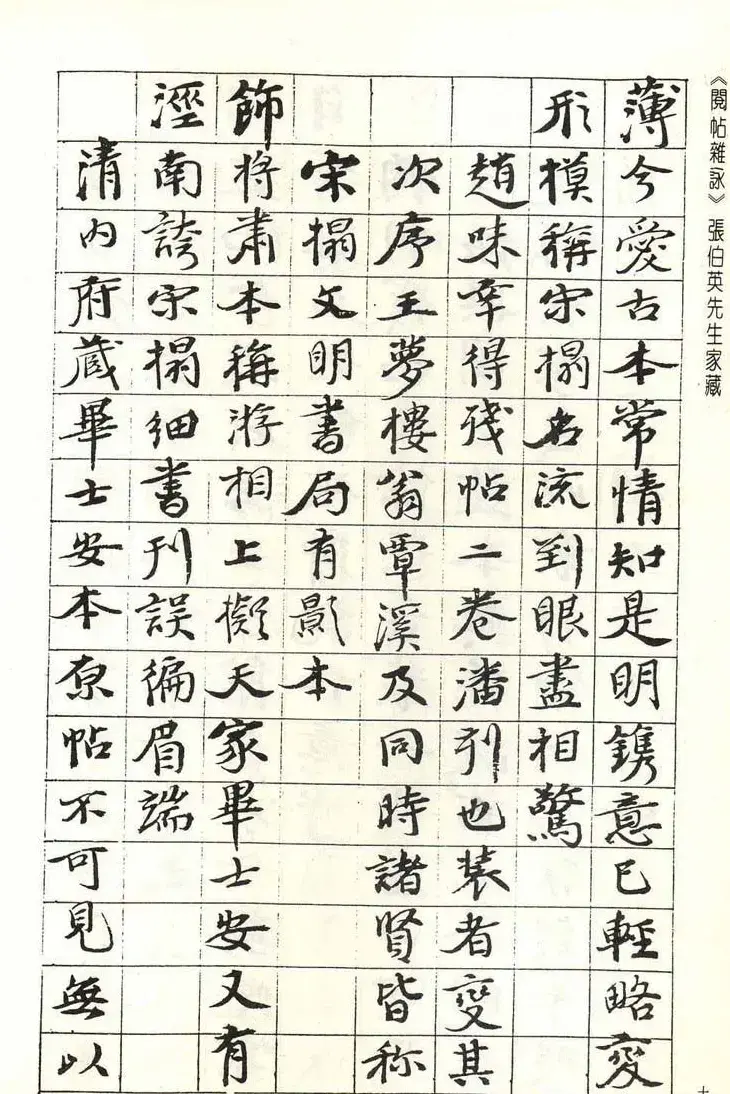 《閱帖雜詠》張伯英先生家藏
薄今愛古本常情知是明鐫意已輕略變
形模稱宋搨名流到眼盡相驚
趙味辛得殘帖二卷潘刻也裝者變其
次序王夢樓翁覃溪及同時諸賢皆称
宋搨文明書局有影本
飾將肅本稱游相上擬天家畢士安又有
涇南誇宋搨細書刊誤徧眉端
清內府藏畢士安本原帖不可見無以